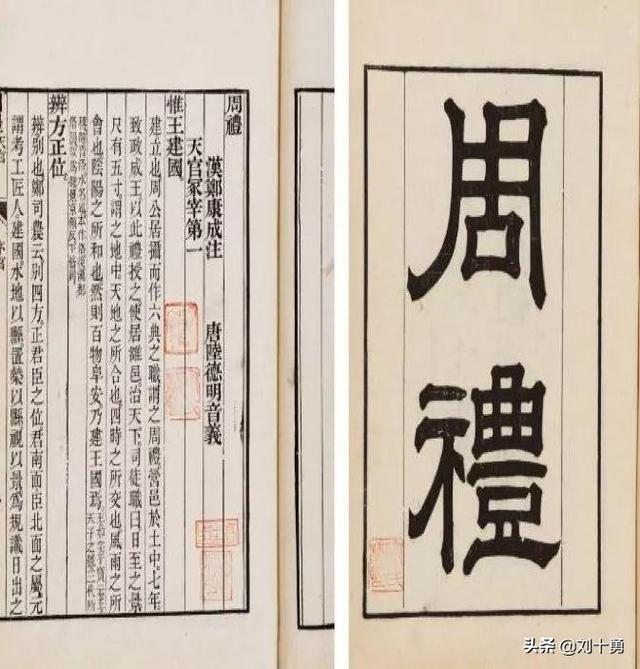 周禮
漢鄭康成注　唐陸德明音義
天官冢宰第一
惟王建國
建立也周公居攝而作六典之職謂之周禮營邑於土中七年
致政成王以此禮授之使居雒邑治天下司徒職曰日至之景
尺有五寸謂之地中天地之所合也四時之所交也風雨之所
會也陰陽之所和也然則百物阜安乃建王國焉
辨方正位
辨別也鄭司農云別四方正君臣之位君南面臣北面之屬元
謂考工匠人建國水地以縣置槷以縣視以景爲規識日出之
周禮
头条 @刘十勇